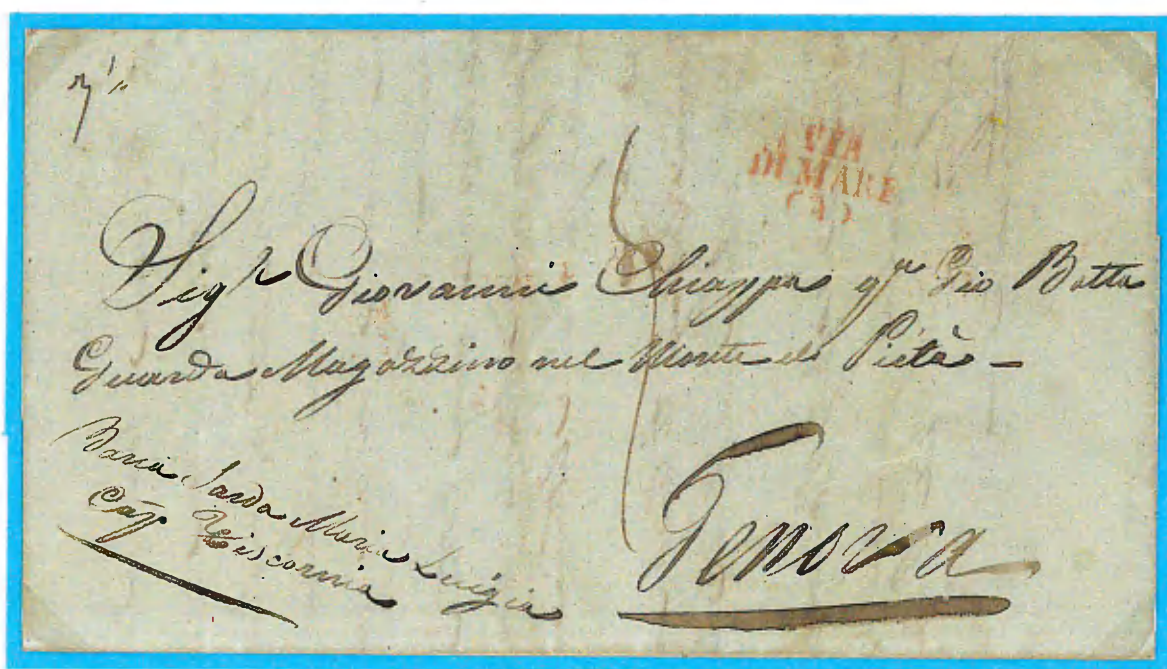 VIA
DI MARE
(A)
Sigr Giovanni Chiappa qm Gio Batta
Guarda Magazzino nel Monte di Pietà -
Sarda Maria Luigia
Cap Viscornia
Genova